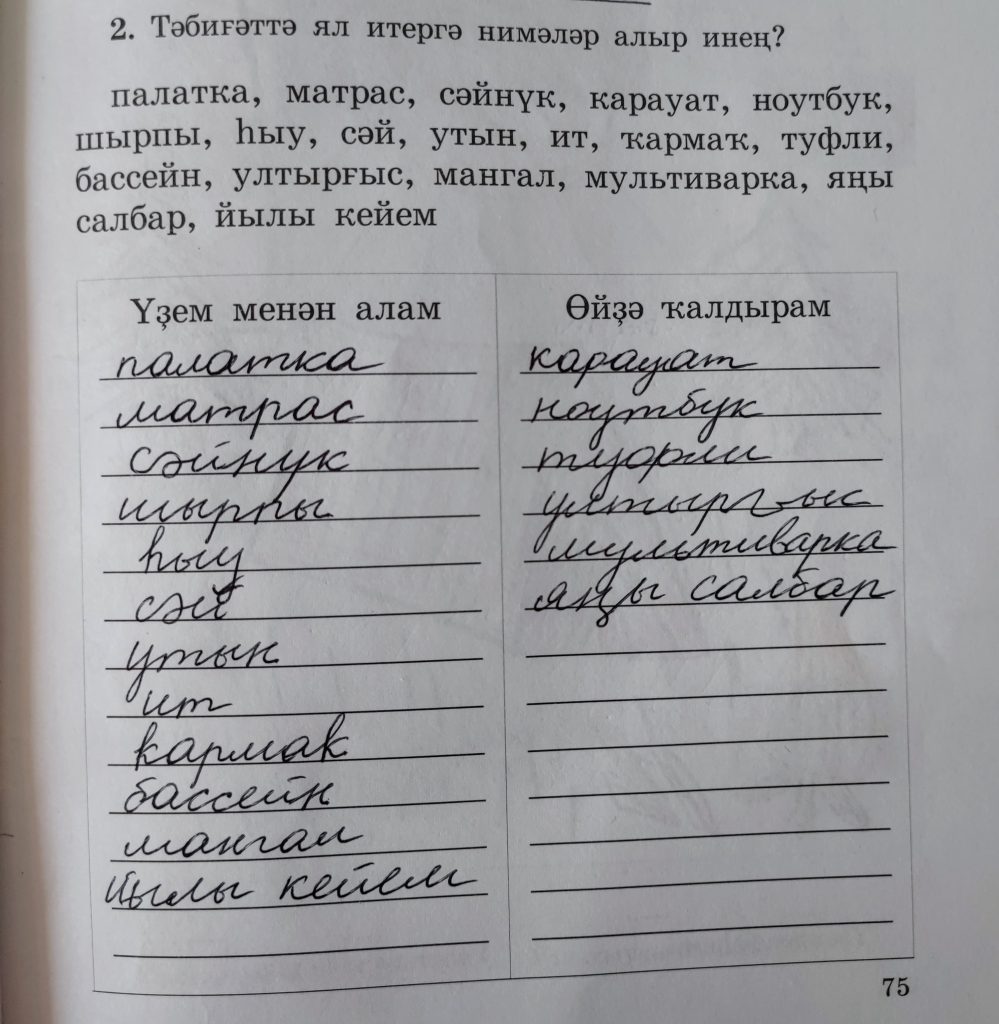 2. Тәбиғәттә ял итергә нимәләр алыр инең?
палатка, матрас, сәйнүк, карауат, ноутбук,
шырпы, һыу, сәй, утын, ит, ҡармаҡ, туфли,
бассейн, ултырғыс, мангал, мультиварка, яңы
салбар, йылы кейем
Үҙем менән алам
палатка
матрас
сәйнук
шырпы
һыу
сәй
утын
ит
кармак
бассейн
мангал
йылы кейем
Өйҙә ҡалдырам
карауат
ноутбук
туфли
ултырғыс
мультиварка
яңы салбар
75